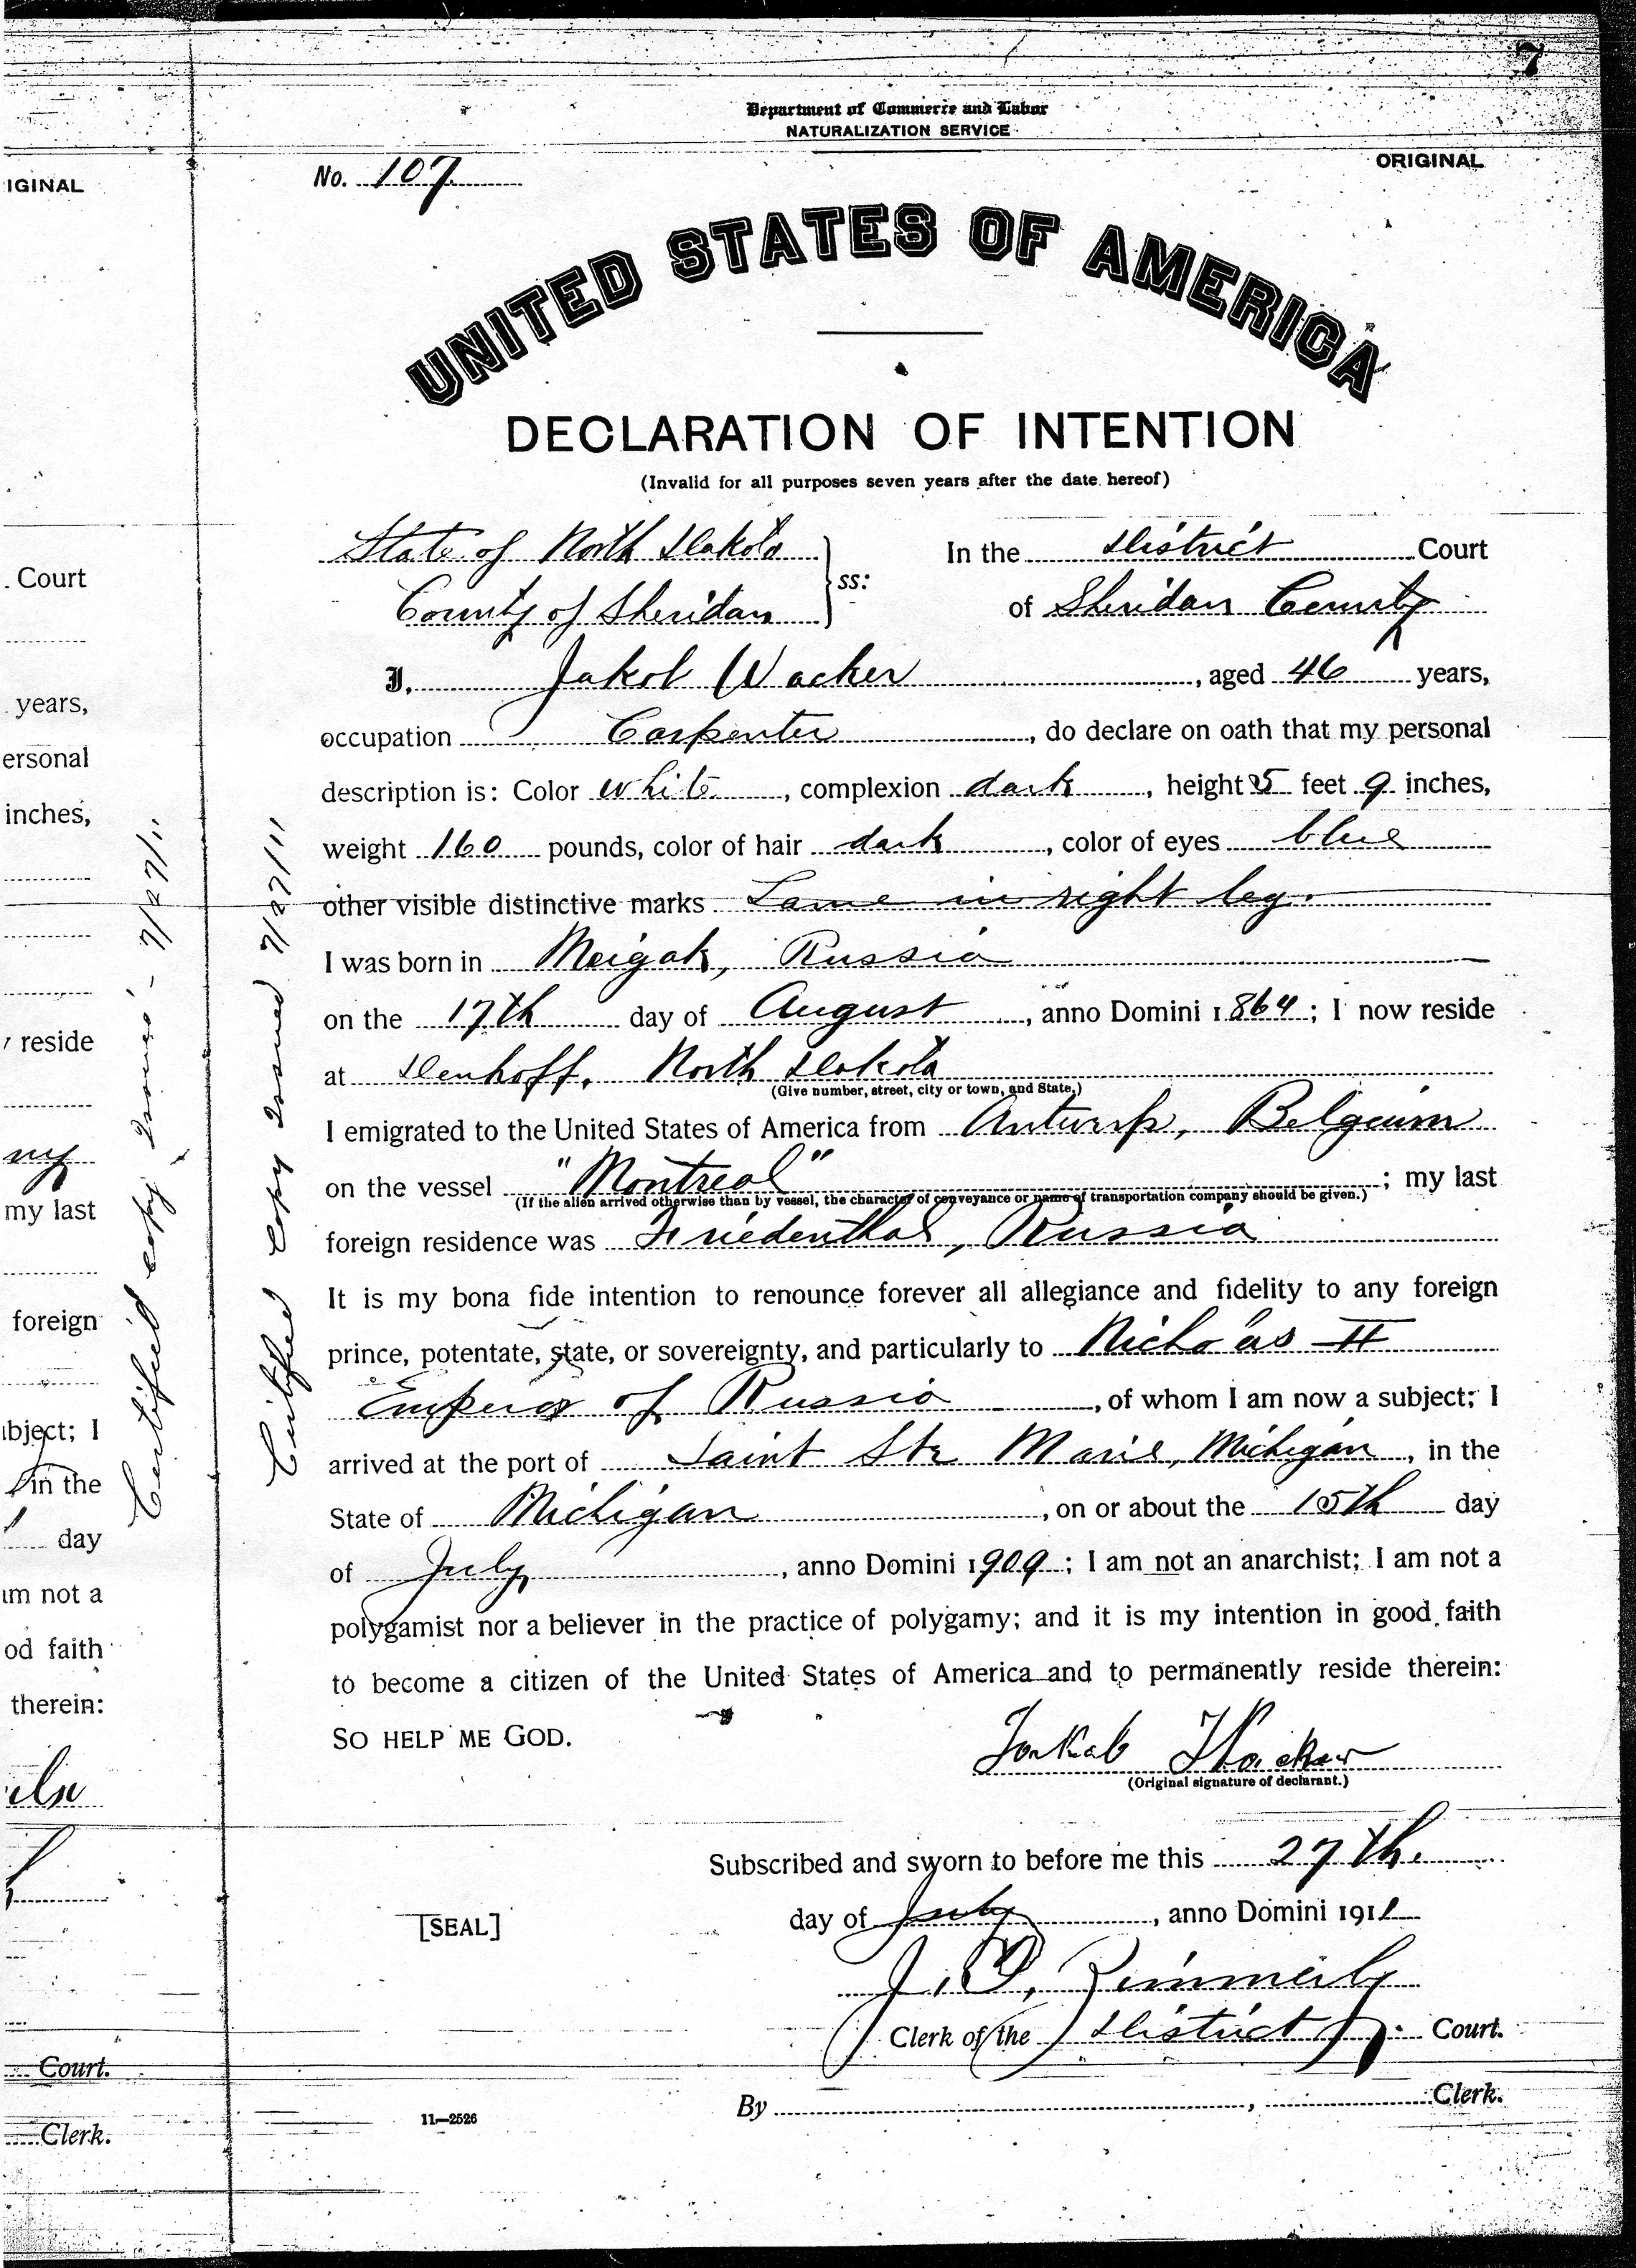 7
Department of Commerce and Labor
NATURALIZATION SERVICE
No. 107
ORIGINAL
UNITED STATES OF AMERICA
DECLARATION OF INTENTION
(Invalid for all purposes seven years after the date hereof)
State of North Dakota
County of Sheridan
ss:
In the District Court
of Sheridan County
I, Jakob Wacker, aged 46 years,
occupation Carpenter, do declare on oath that my personal
description is: Color white, complexion dark, height 5 feet 9 inches,
weight 160 pounds, color of hair dark, color of eyes blue
other visible distinctive marks Lame in right leg.
I was born in Meigak, Russia
on the 17th day of August, anno Domini 1864; I now reside
at Denhoff, North Dakota
(Give number, street, city or town, and State.)
I emigrated to the United States of America from Antwerp, Belguim
on the vessel "Montreal"; my last
(If the alien arrived otherwise than by vessel, the character of conveyance or name of transportation company should be given.)
foreign residence was Friedenthal, Russia
It is my bona fide intention to renounce forever all allegiance and fidelity to any foreign
prince, potentate, state, or sovereignty, and particularly to Nicholas II
Emperor of Russia, of whom I am now a subject; I
arrived at the port of Saint Ste Marie, Michigan, in the
State of Michigan, on or about the 15th day
of July, anno Domini 1909; I am not an anarchist; I am not a
polygamist nor a believer in the practice of polygamy; and it is my intention in good faith
to become a citizen of the United States of America and to permanently reside therein:
SO HELP ME GOD.
Jakab Wacker
(Original signature of declarant.)
Subscribed and sworn to before me this 27th.
[SEAL]
day of July, anno Domini 1911
Clerk of the District Court.
By , Clerk.
11—2526
Certified copy issued 7/27/11
Certified copy issued - 7/27/11
IGINAL
Court
years,
ersonal
inches,
reside
ny
my last
foreign
bject; I
in the
day
am not a
od faith
therein:
Court.
Clerk.